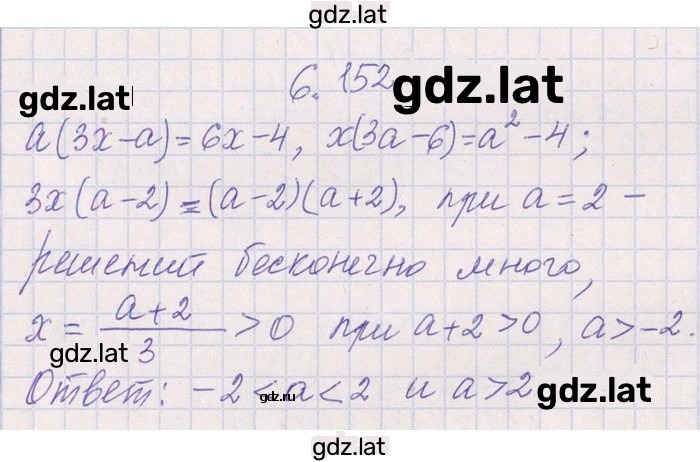 gdz.lat
6.152 gdz.lat
gdz.lat
a(3x-a)=6x-4, x(3a-6)=a²-4;
3x(a-2)=(a-2)(a+2), при a=2 -
решений бесконечно много,
x = (a+2)/3 >0 при a+2>0, a>-2.
gdz.lat
Ответ: -2<a<2 и a>2
gdz.lat
gdz.lat
gdz.lat